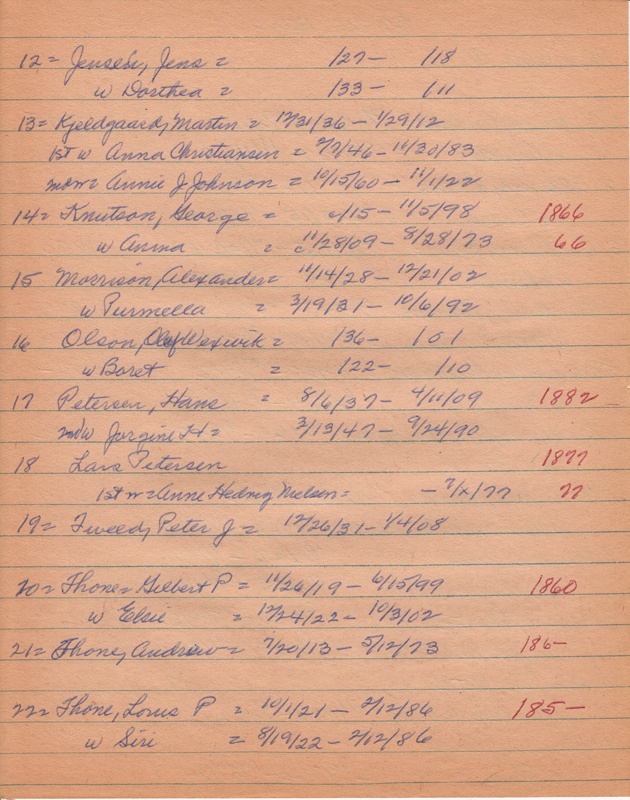 12 = Jensen, Jens = /27 - /18
w Dorthea = /33 - /11
13 = Kjeldgaard, Martin = 12/31/36 - 1/29/12
1st w Anna Christiansen = 2/7/46 - 11/30/83
2nd w = Annie J Johnson = 10/15/60 - 11/1/22
14 = Knutson, George = c/15 - 11/5/98 1866
w Anna = c 11/28/09 - 8/28/73 66
15 Morrison, Alexander = 11/14/28 - 12/21/02
w Purmella = 3/19/31 - 10/6/92
16 Olson, Olaf Wexwik = /36 - /01
w Boret = /22 - /10
17 Petersen, Hans = 8/6/37 - 4/11/09 1882
2nd w Jorgine H = 3/13/47 - 9/24/90
18 Lars Petersen 1877
1st w = Anne Hedwig Nielsen = - 7/x/77 77
19 = Tweed, Peter J = 12/26/31 - 1/4/08
20 = Thone = Gilbert P = 11/26/19 - 6/15/99 1860
w Elsie = 12/24/22 - 10/3/02
21 = Thone, Andrew = 7/20/13 - 5/12/73 186-
22 = Thone, Lorus P = 10/1/21 - 2/12/86 185-
w Siri = 8/19/22 - 2/12/86